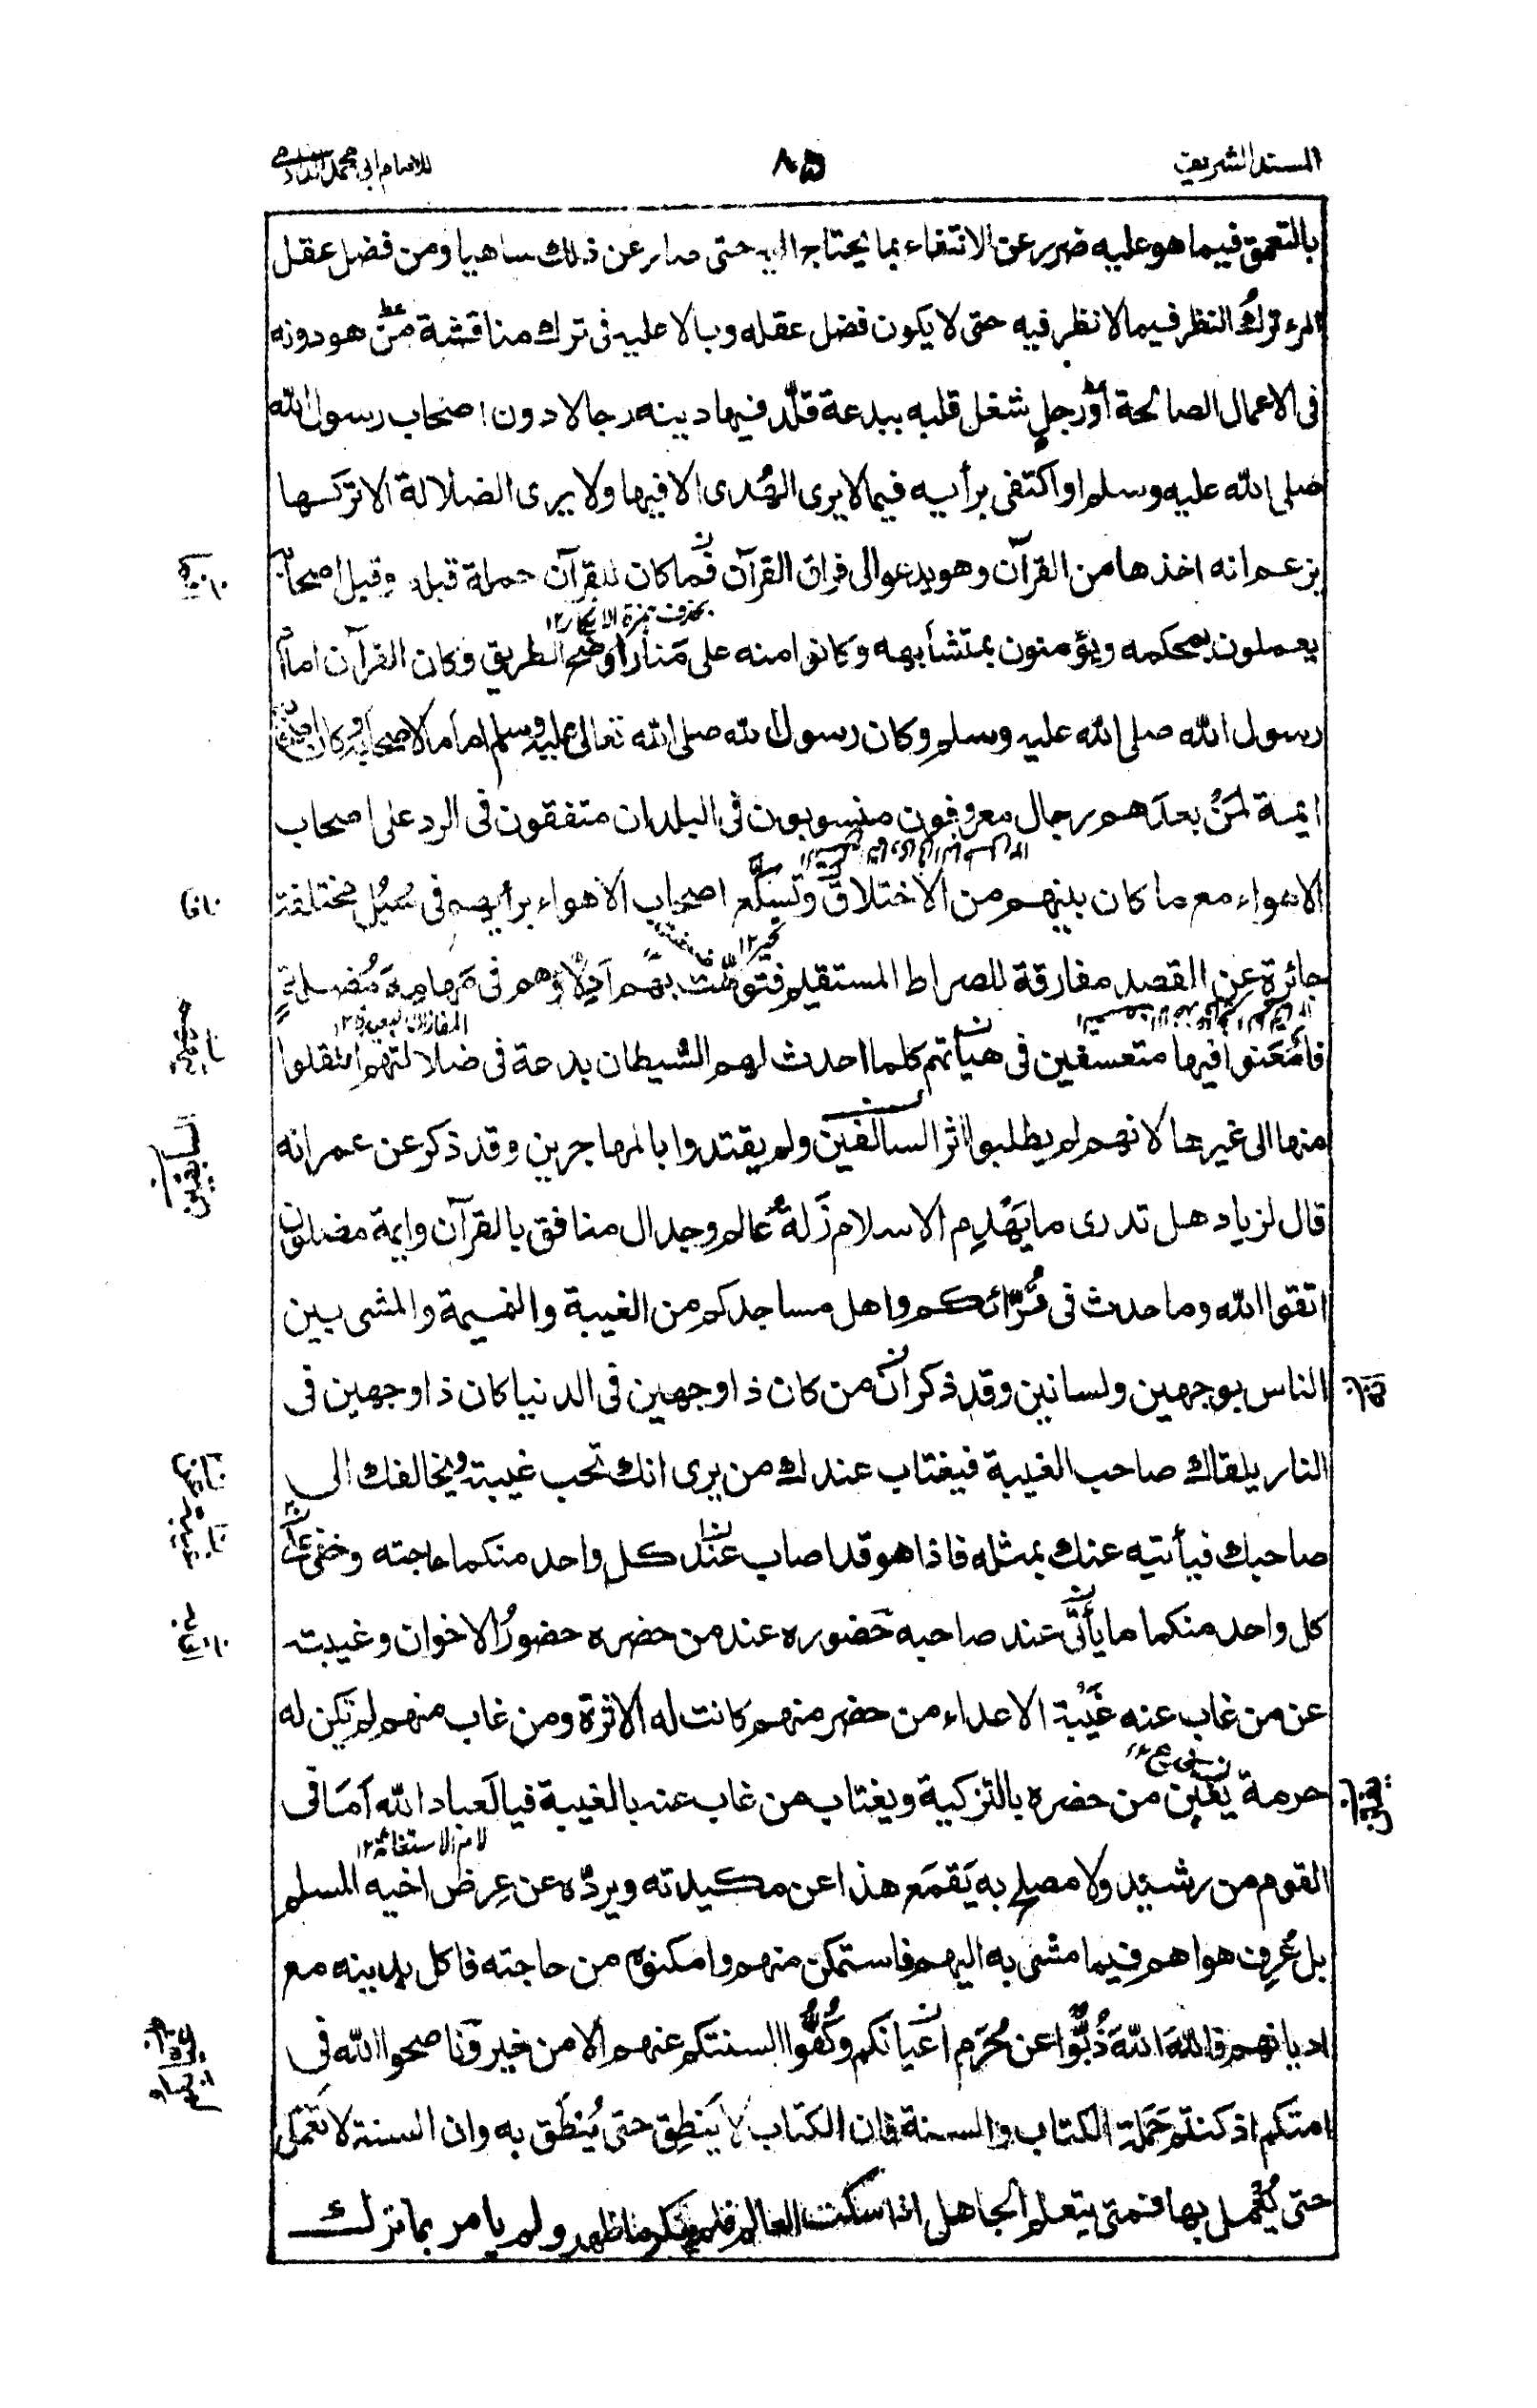 المسند الشريف ٨٥ للامام ابي محمد الدارمي
بالتعمق فيما هو عليه ضرر عن الانتفاء بما يحتاج اليه حتى صار عن ذلك ساهيا ومن فضل عقل
المرء ترك النظر فيما لا نظر فيه حتى لا يكون فضل عقله وبالا عليه فى ترك مناقشة من هو دونه
فى الاعمال الصالحة او رجل شغل قلبه ببدعة قلّد فيها دينه رجالا دون اصحاب رسول الله
صلى الله عليه وسلم او اكتفى برأيه فيما لا يرى الهُدى الا فيها ولا يرى الضلالة الا تركها
بزعم انه اخذها من القرآن وهو يدعو الى فراق القرآن فما كان للقرآن حملة قبله وقبل اصحابه
بحذف همزة الانكار ١٢
يعملون بمحكمه ويؤمنون بمتشابهه وكانوا منه على مَنار اوضح الطريق وكان القرآن امام
رسول الله صلى الله عليه وسلم وكان رسول الله صلى الله تعالى عليه وسلم اماما لاصحابه وكان اصحابه
ايمة لمَنْ بعدَهم رجال معروفون منسوبون فى البلدان متفقون فى الرد على اصحاب
الاهواء مع ما كان بينهم من الاختلاف وتسكّع اصحاب الاهواء برأيهم فى سُبُل مختلفة
تحير ١٢
جائرة عن القصد مفارقة للصراط المستقيم فتوهّت بهم ادلاؤهم فى مَهامِهَ مُضِلةٍ
المفازات البعيدة ١٢
فامْعَنوا فيها متعسفين فى هيآتهم كلما احدث لهم الشيطان بدعة فى ضلالتهم انتقلوا
منها الى غيرها لانهم لم يطلبوا اثر السالفين ولم يقتدوا بالمهاجرين وقد ذكر عن عمر انه
السابقين
قال لزياد هل تدرى ما يَهْدِم الاسلام زَلةُ عالم وجدال منافق بالقرآن وايمة مضلون
اتقوا الله وما حدث فى قُرّائكم واهل مساجدكم من الغيبة والنميمة والمشى بين
الناس بوجهين ولسانين وقد ذكر انّ من كان ذا وجهين فى الدنيا كان ذا وجهين فى
النار يلقاك صاحب الغيبة فيغتاب عندك من يرى انك تحب غيبته ويخالفك الى
صاحبك فيأتيه عنك بمثله فاذا هو قد اصاب عند كل واحد منكما حاجته وخفى على
كل واحد منكما ما يأتى عند صاحبه حضوره عند من حضره حضورُ الاخوان وغيبته
عن من غاب عنه غَيْبة الاعداء من حضر منهم كانت له الاثرة ومن غاب منهم لم تكن له
حرمة يفتن من حضره بالتزكية ويغتاب من غاب عنه بالغيبة فيا لَعباد الله اَمَا فى
لام الاستغاثة ١٢
القوم من رشيد ولا مصلح به يَقمَع هذا عن مكيدته ويردّه عن عِرض اخيه المسلم
بل عُرِف هواهم فيما مشى به اليهم فاستمكن منهم وامكنوه من حاجته فاكل بدينه مع
اديانهم فاللهَ اللهَ ذُبُّوا عن حُرَم اعيانكم وكُفُّوا السنتكم عنهم الا من خير وناصحوا الله فى
امتكم اذ كنتم حَمَلة الكتاب والسنة فان الكتاب لا يَنطِق حتى يُنطَق به وان السنة لا تَعمَل
حتى يُعْمل بها فمتى يتعلم الجاهل اذا سكت العالم فلم ينكر ما ظهر ولم يامر بما ترك